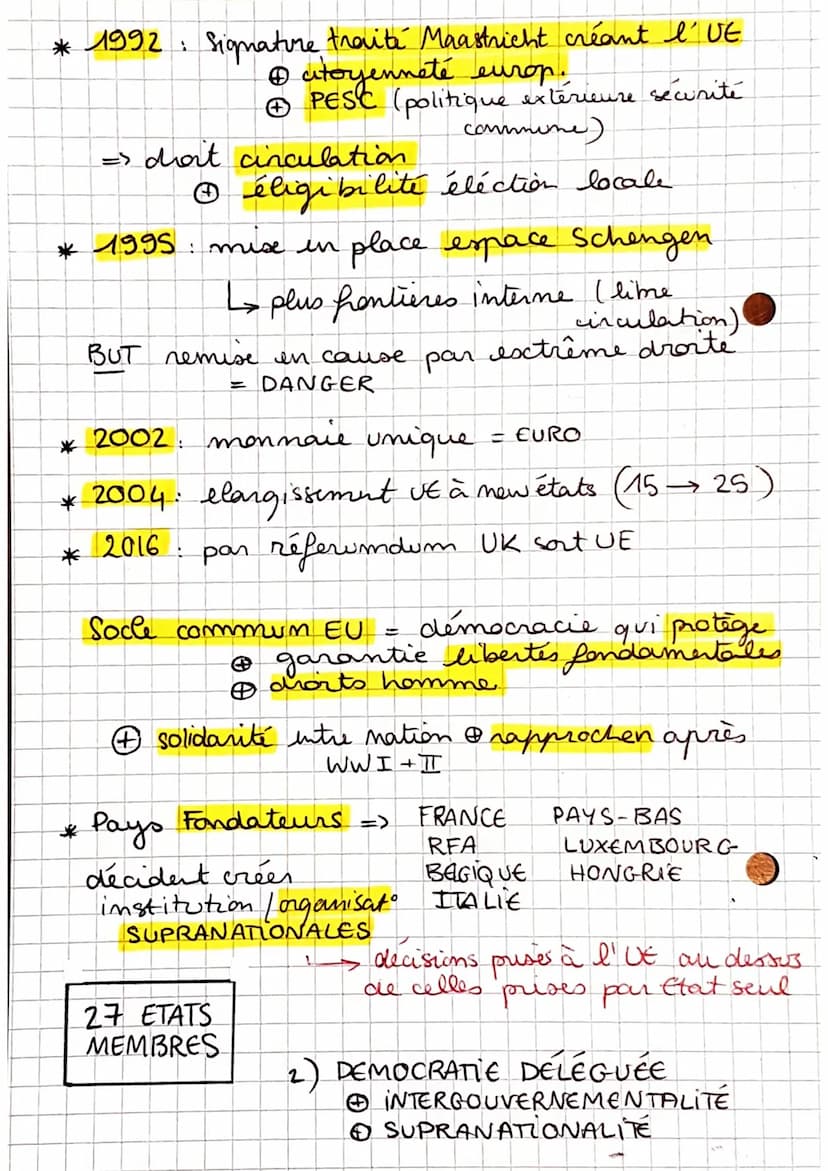 * 1992 : Signature traité Maastricht créant l'UE
⊕ citoyenneté europ.
⊕ PESC (politique extérieure sécurité
commune)
=> droit circulation
⊕ éligibilité éléction locale
* 1995 : mise en place espace Schengen
↳ plus frontières interne (libre
circulation)
BUT remise en cause par extrême droite
= DANGER
* 2002 : monnaie unique = EURO
* 2004 : elargissement UE à new états (15 → 25)
* 2016 : par réferumdum UK sort UE
Socle commum EU = démocracie qui protège
⊕ garantie libertés fondamentales
⊕ droits homme.
⊕ solidarité entre nation ⊕ rapprocher après
WWI + II
* Pays Fondateurs => FRANCE PAYS-BAS
RFA LUXEMBOURG
décident créer BEGIQUE HONGRIE
institution / organisat° ITALIE
SUPRANATIONALES
↳ décisions prises à l'UE au dessus
de celles prises par Etat seul
27 ETATS
MEMBRES
2) DEMOCRATIE DÉLÉGUÉE
⊕ INTERGOUVERNEMENTALITÉ
⊕ SUPRANATIONALITÉ